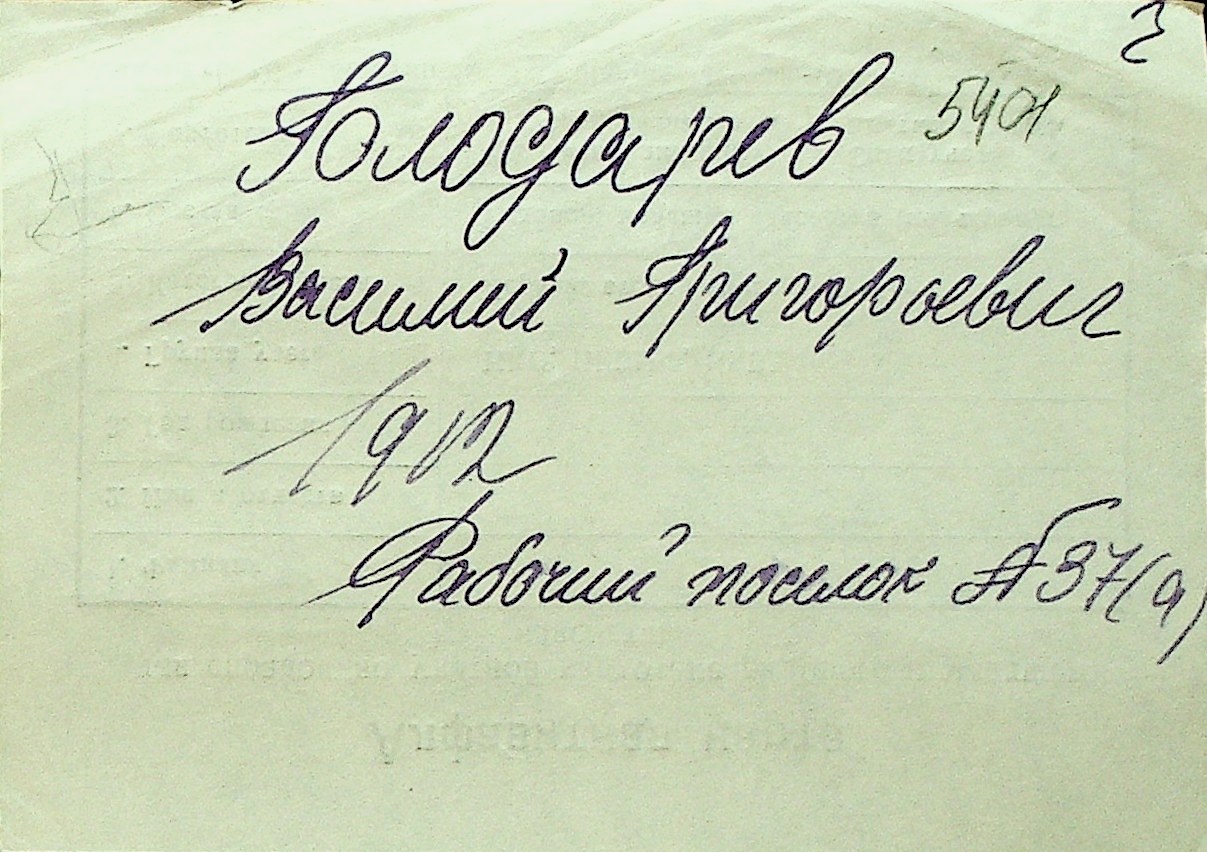 5401
Голодарев
Василий Григорьевич
1912
Рабочий поселок № 37(а)